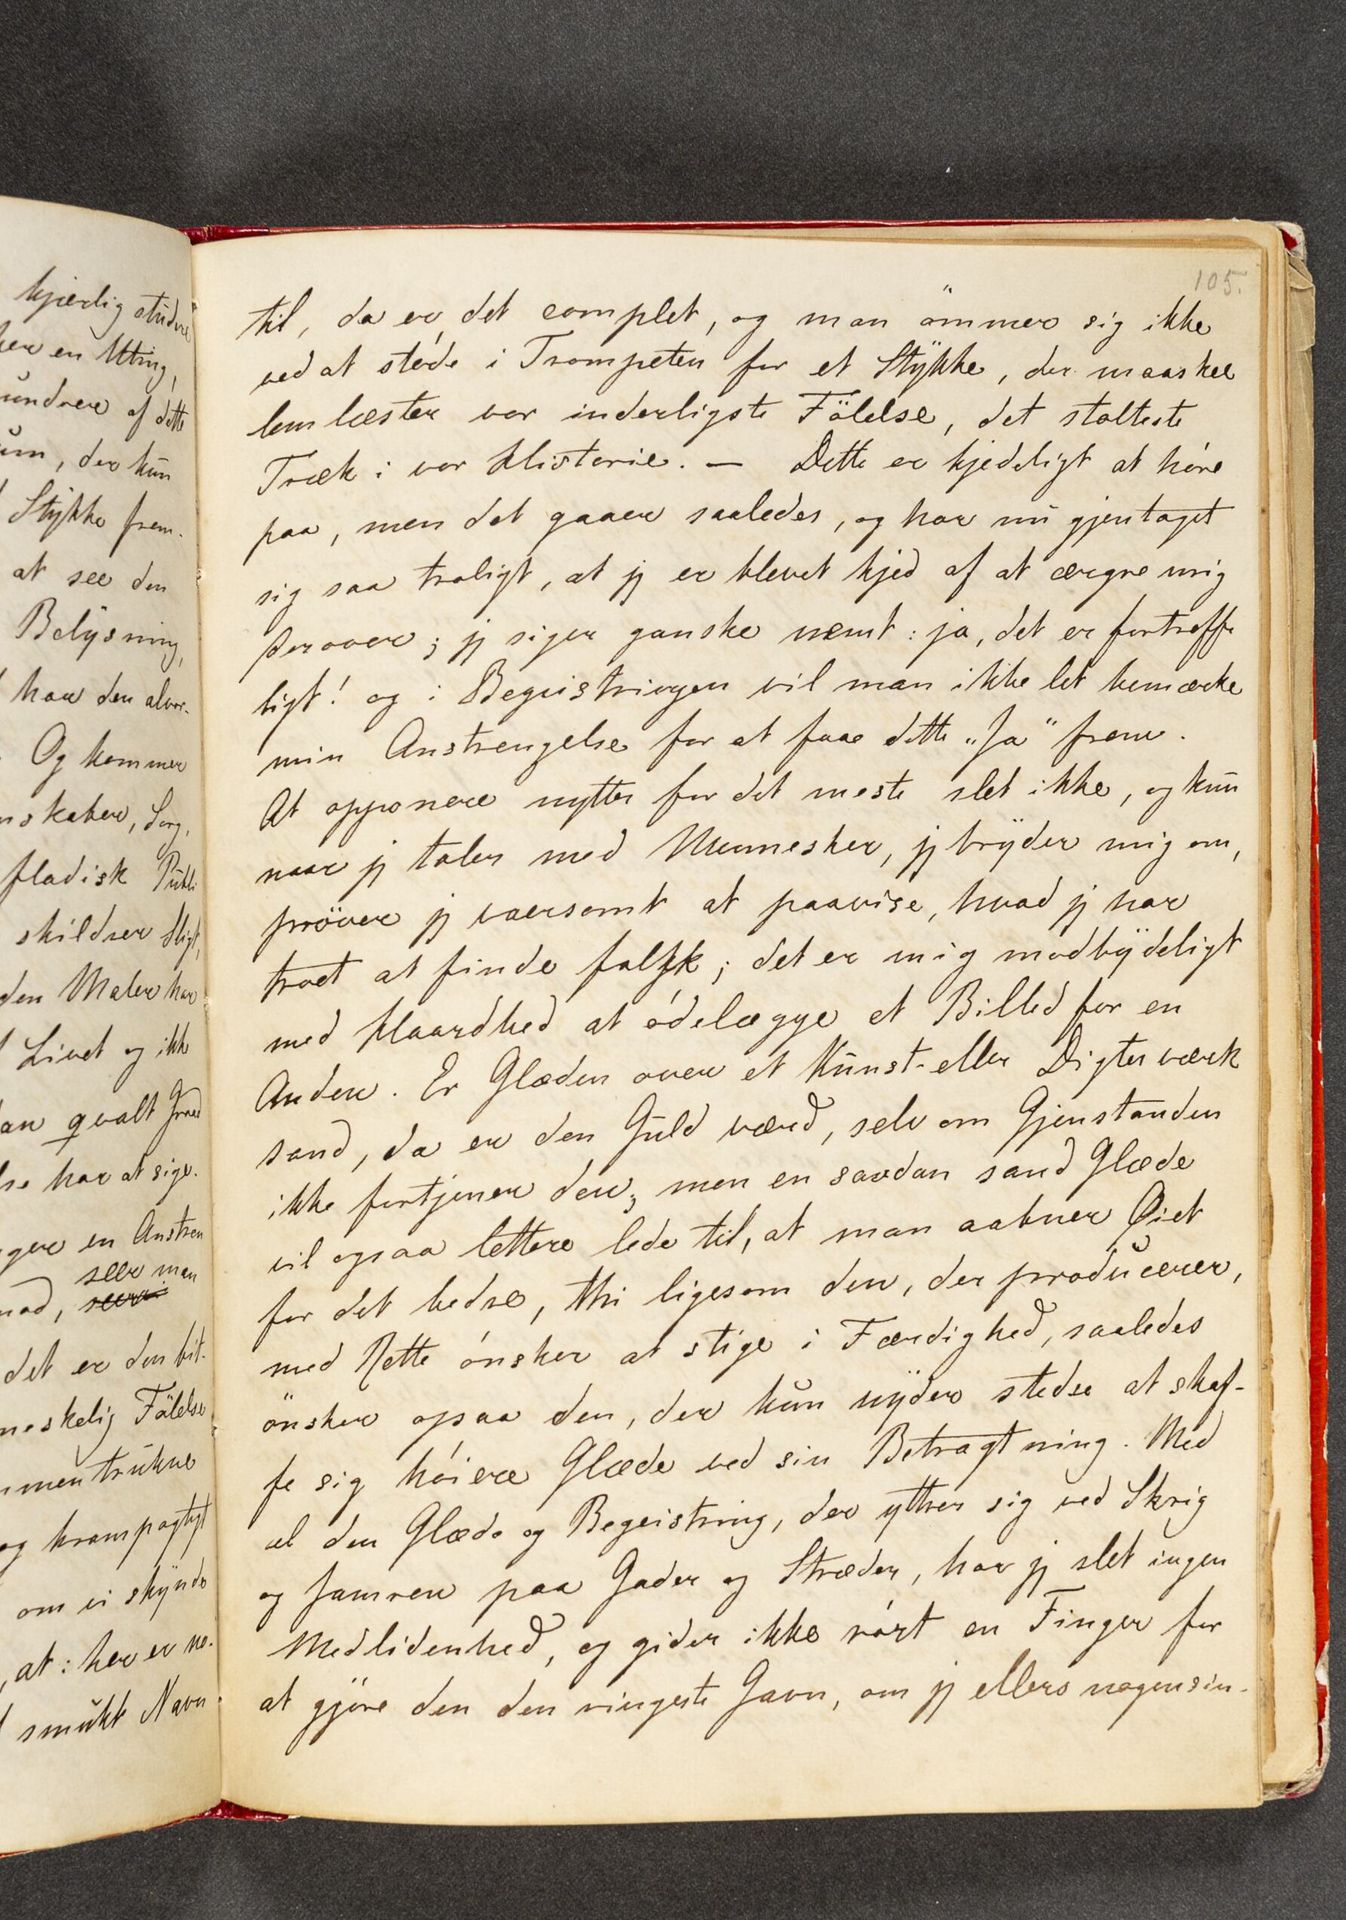 kjærlig studere
her en Ytring,
undrer af dette
um, der kun
Stykke frem-
at see den
Belysning,
har den alvor-
Og kommer
nskaber, Sorg,
fladisk Publi
skildrer Sligt,
den Maler har
Livet og ikke
an qvalt
har at sige.
ger en Anstren
seer man
nod, seer
det er den bit-
neskelig Følelse
mentrukne
og krampagtigt
om vi skynde
, at: her er no-
smukt Navn
105.
til, da er det complet, og man ömmer sig ikke
ved at støde i Trompeten for et Stykke, der maaskee
lemlæster vor inderligste Fölelse, det stolteste
Træk i vor Historie. — Dette er kjedeligt at høre
paa, men det gaaer saaledes, og har nu gjentaget
sig saa troligt, at jg er blevet kjed af at ærgre mig
derover; jg siger ganske nemt: ja, det er fortreffe
ligt! og i Begeistringen vil man ikke let bemærke
min Anstrengelse for at faae dette „Ja“ frem.
At opponere nytter for det meste slet ikke, og kun
naar jg taler med Mennesker, jg bryder mig om,
pröver jg varsomt at paavise, hvad jg har
troet at finde falsk; det er mig modbydeligt
med Haardhed at ødelægge et Billed for en
Anden. Er Glæden over et Kunst- eller Digterværk
sand, da er den Guld værd, selv om Gjenstanden
ikke fortjener den; men en saadan sand Glæde
vil ogsaa lettere lede til, at man aabner Øiet
for det bedre, thi ligesom den, der producerer,
med Rette ønsker at stige i Færdighed, saaledes
önsker ogsaa den, der kun nyder stedse at skaf-
fe sig høiere Glæde ved sin Betragtning. Med
al den Glæde og Begeistring, der yttrer sig ved Skrig
og Jamren paa Gader og Stræder, har jg slet ingen
Medlidenhed, og gider ikke rørt en Finger for
at gjøre den den ringeste Gavn, om jg ellers nogensin-